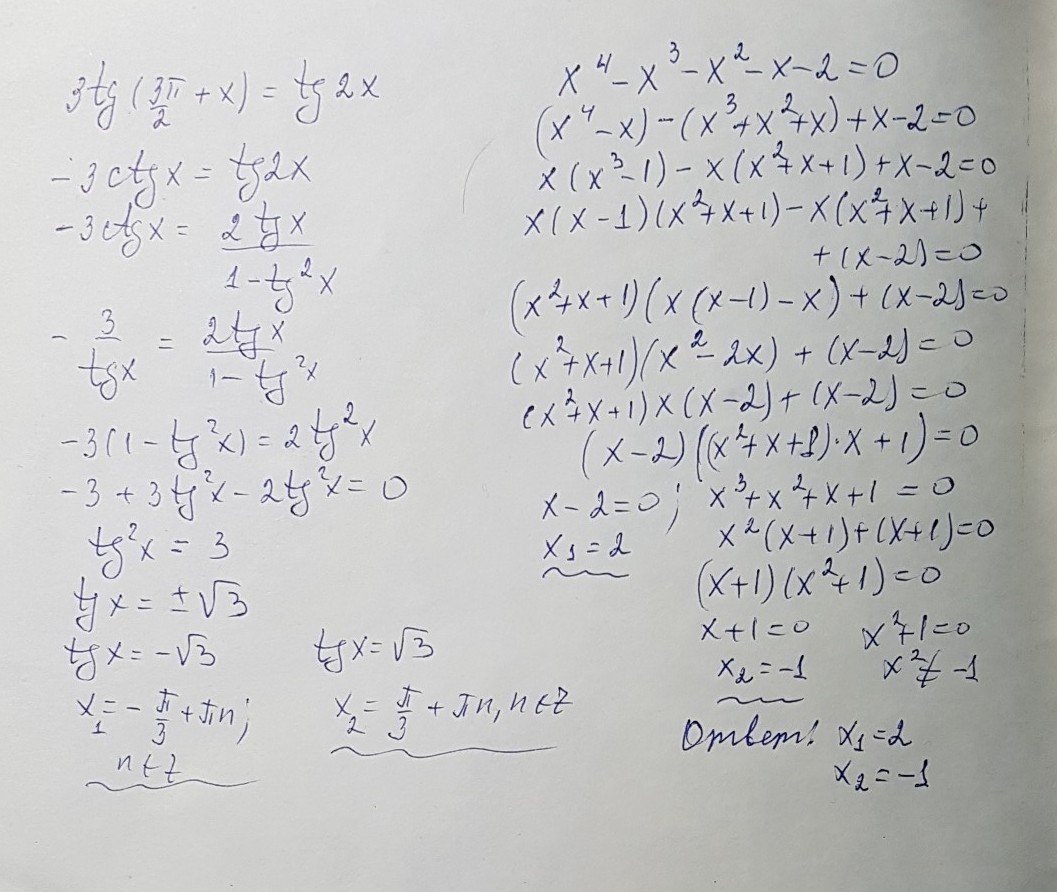 3tg(3π/2 + x) = tg2x
-3ctgx = tg2x
-3ctgx = 2tgx/(1-tg²x)
-3/tgx = 2tgx/(1-tg²x)
-3(1-tg²x) = 2tg²x
-3+3tg²x-2tg²x=0
tg²x = 3
tgx = ±√3
tgx=-√3 tgx=√3
x₁=-π/3+πn; x₂=π/3+πn, n∈Z
n∈Z
x⁴-x³-x²-x-2=0
(x⁴-x)-(x³+x²+x)+x-2=0
x(x³-1)-x(x²+x+1)+x-2=0
x(x-1)(x²+x+1)-x(x²+x+1)+
+(x-2)=0
(x²+x+1)(x(x-1)-x)+(x-2)=0
(x²+x+1)(x²-2x)+(x-2)=0
(x²+x+1)x(x-2)+(x-2)=0
(x-2)((x²+x+1)·x+1)=0
x-2=0; x³+x²+x+1=0
x₁=2 x²(x+1)+(x+1)=0
(x+1)(x²+1)=0
x+1=0 x²+1=0
x₂=-1 x²≠-1
Ответ: x₁=2
x₂=-1